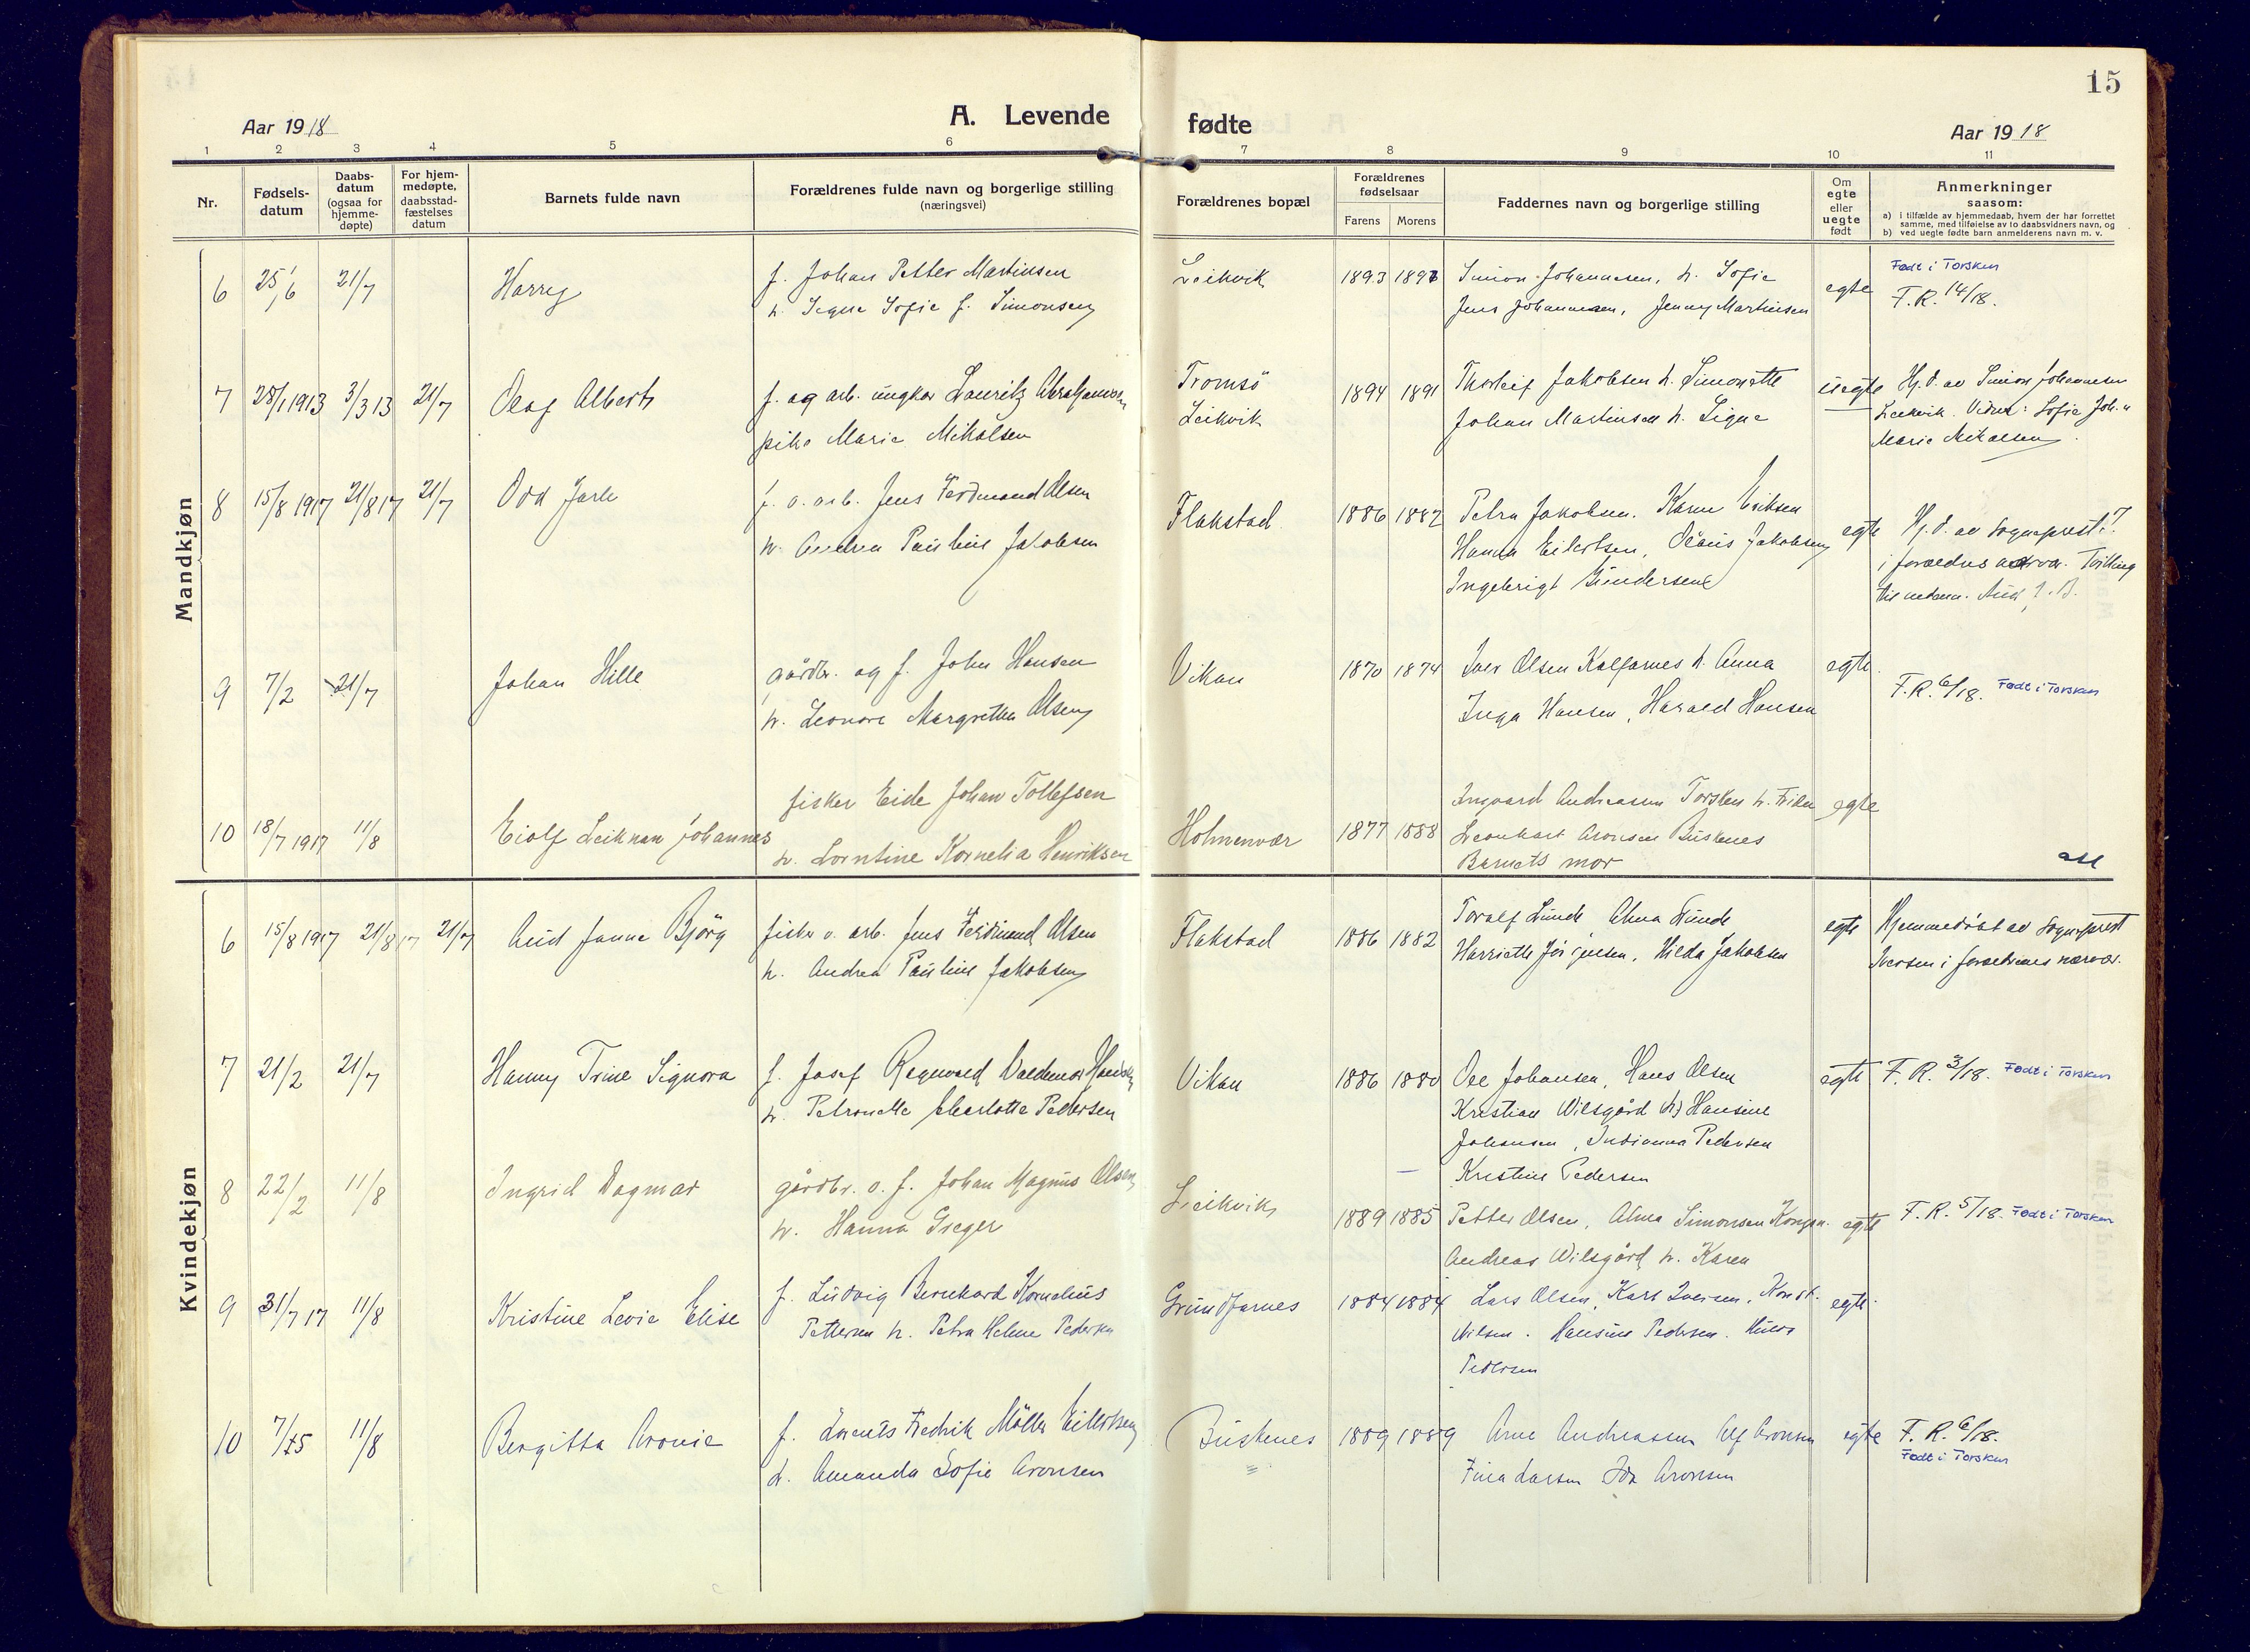 15
Aar 1918
A. Levende fødte
Aar 1918
1 2 3 4 5 6 7 8 9 10 11
Nr.
Fødsels-
datum
Daabs-
datum
(ogsaa for
hjemme-
døpte)
For hjem-
medøpte,
daabsstad-
fæstelses
datum
Barnets fulde navn
Forældrenes fulde navn og borgerlige stilling
(næringsvei)
Forældrenes bopæl
Forældrenes
fødselsaar
Farens Morens
Faddernes navn og borgerlige stilling
Om
egte
eller
uegte
født
Anmerkninger
saasom:
a) i tilfælde av hjemmedaab, hvem der har forrettet
samme, med tilføielse av to daabsvidners navn, og
b) ved uegte fødte barn anmelderens navn m. v.
Mandkjøn
6 25/6 21/7 Harry
f. Johan Petter Martinsen
h. Signe Sofie f. Simonsen
Leikvik 1893
Simon Johannesen, h. Sofie
Jens Johannesen, Jenny Martinsen
egte
Født i Torsken
F.R. 14/18.
7 28/1 1913 3/3 13 21/7 Olaf Albert
f. og arb. ungkar Lauritz Abrahamsen
pike Marie Mikalsen
Tromsö
Leikvik
1894 1891
Thorleif Jakobsen h. Simonette
Johan Martinsen h. Signe
uegte
Hj.d. av Simon Johannesen
Leikvik. Vidner: Sofie Joh.
Marie Mikalsen
8 15/8 1917 21/8 17 21/7 Odd Jarle
f. o. arb. Jens Ferdinand Olsen
h. Andrea Pauline Jakobsen
Flakstad 1886 1882
Petra Jakobsen. Karen Eriksen
Hanna Eilertsen, Olaus Jakobsen
Ingebrigt Gundersen
egte
Hj.d. av Sogneprest I.
i forældres nærvær. Tvilling
til nedenn. Aud J. B.
9 7/2 21/7 Johan Hille
gårdbr. og f. John Hansen
h. Leonore Margrethe Olsen
Vikan 1870 1874
Iver Olsen Kalfarnes h. Anna
Inga Hansen, Harald Hansen
egte.
F.R. 6/18. Født i Torsken
10 18/7 1917 11/8 Eiolf Leiknan Johannes
fisker Eide Johan Tollefsen
h. Lorntine Kornelia Henriksen
Holmenvær 1877 1888
Ingvard Andreasen Torsken h.
Leonhart Aronsen Buskenes
Barnets mor
egte
Kvindekjøn
6 15/8 1917 21/8 17 21/7 Aud Janna Bjørg
fisker o. arb. Jens Ferdinand Olsen
h. Andrea Pauline Jakobsen
Flakstad 1886 1882
Toralf Lunde Alma Lunde
Harriette Jörgensen, Hilda Jakobsen
egte
Hjemmedøbt av Sogneprest
Iversen i forældrenes nærvær.
7 21/2 21/7 Hanny Trine Signora
f. Josef Regnvald Valdemar
h. Petronelle Charlotte Pedersen
Vikan 1886 1880
Ole Johansen, Hans Olsen
Kristian Wilsgård (h) Hansine
Johansen, Indianna Pedersen
Kristine Pedersen
egte
F.R. 3/18. Født i Torsken
8 22/2 11/8 Ingrid Dagmar
gårdbr. o. f. Johan Magnus Olsen
h. Hanna Greger
Leikvik 1889 1885
Petter Olsen, Alma Simonsen
Andreas Wilsgård h. Karen
egte
F.R. 5/18. Født i Torsken
9 31/7 17 11/8 Kristine Levie Elise
f. Ludvig Bernhard Kornelius
Pettersen h. Petra Helene Pedersen
Grundfarnes 1884 1884
Lars Olsen, Karl Iversen, Konst.
Nilsen. Hansine Pedersen. Hilda
Pedersen
egte.
10 7/5 11/8 Bergitta Aronie
f. Lorents Fredrik Möller Eilertsen
h. Amanda Sofie Aronsen
Buskenes 1889 1889
Arne Andreassen Alf Aronsen
Fina Larsen Ida Aronsen
egte
F.R. 6/18.
Født i Torsken